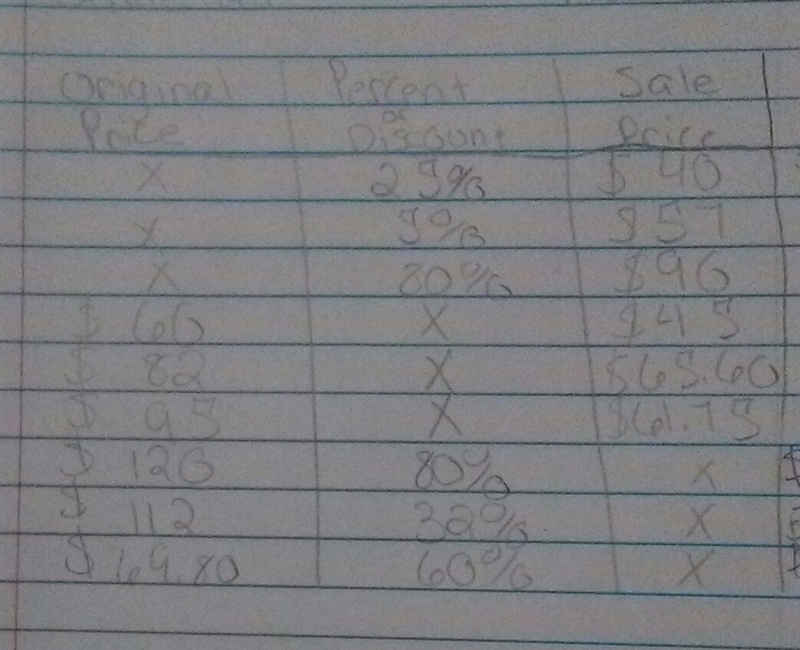 Original Percent Sale
Price of Discount Price
X 25% $40
X 5% $57
X 80% $96
$ 60 X $45
$ 82 X $65.60
$ 95 X $61.75
$ 120 80% X
$ 112 32% X
$ 69.80 60% X